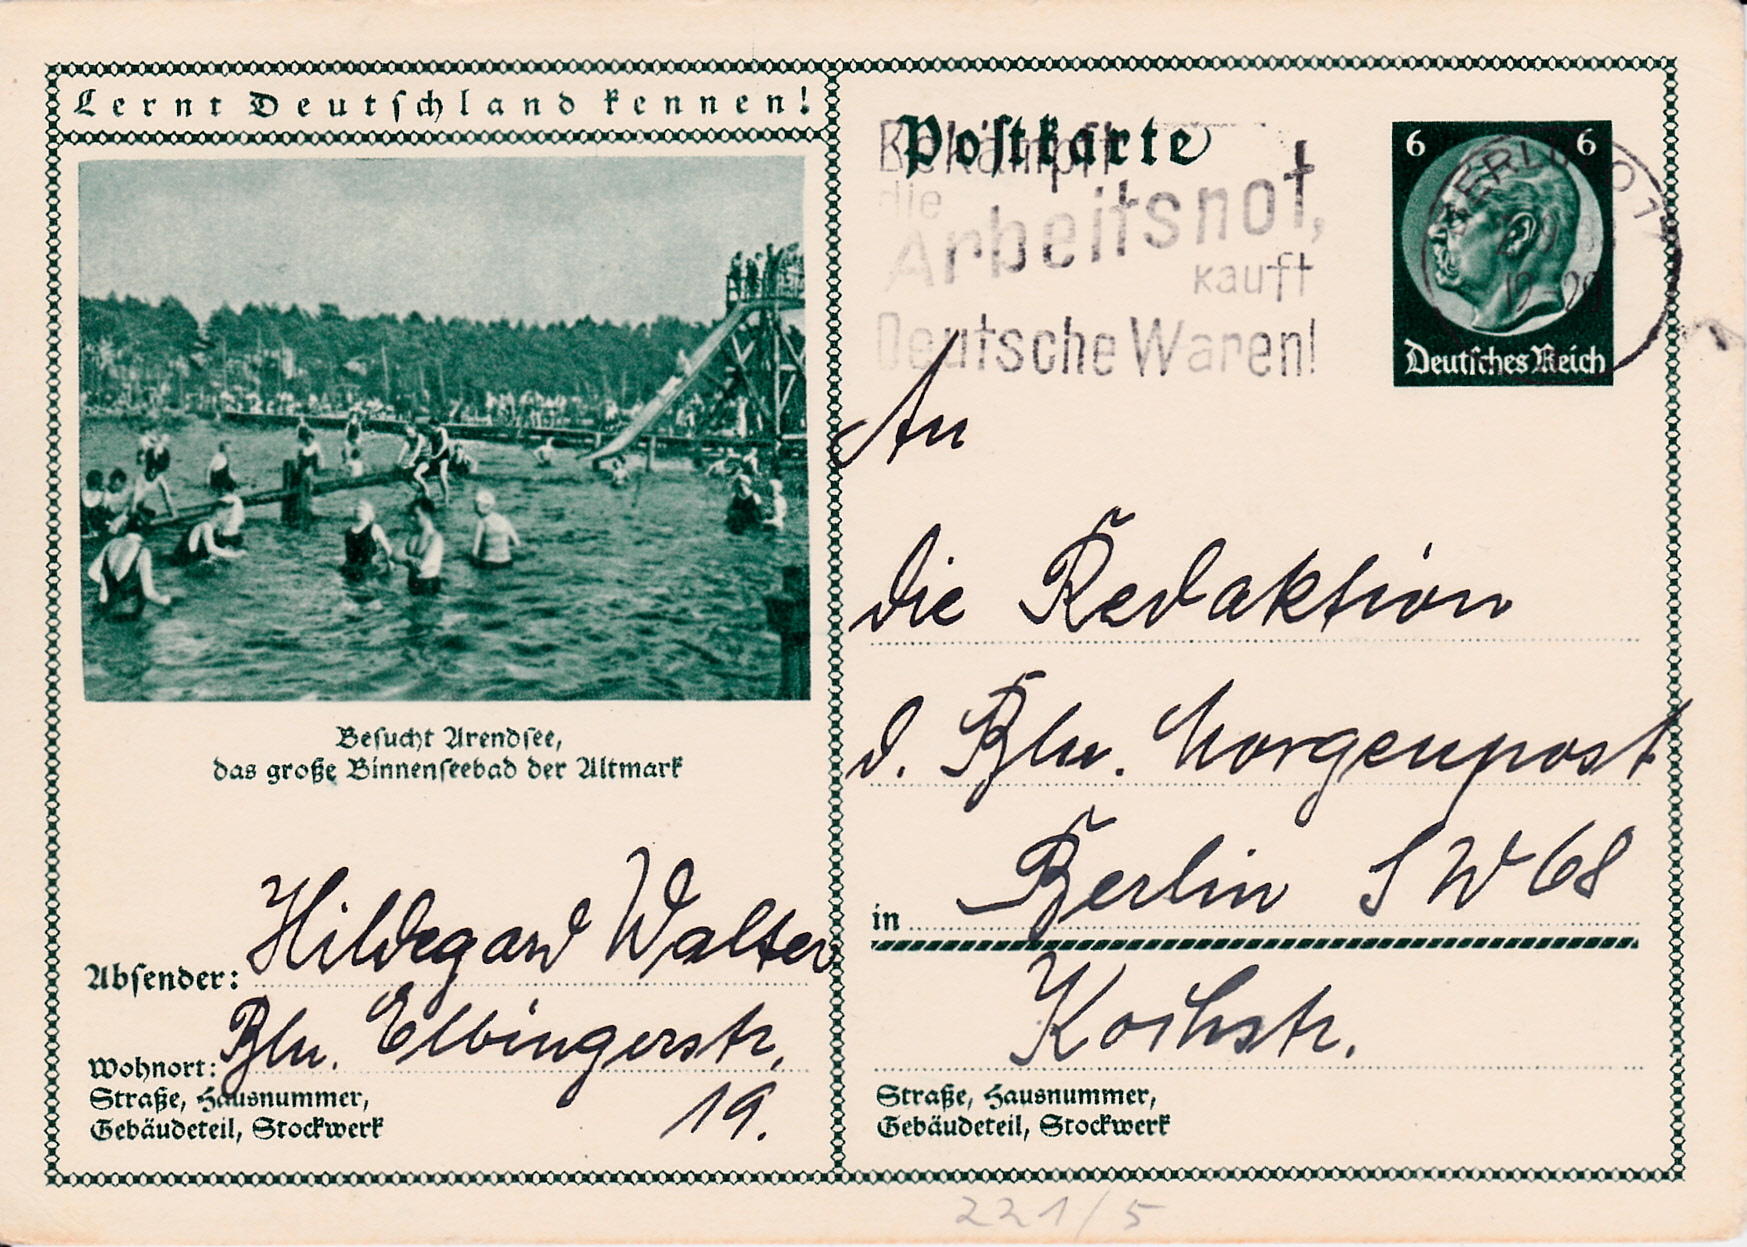 Lernt Deutschland kennen!
Besucht Arendsee,
das große Binnenseebad der Altmark
Hildegard Walter
Absender:
Bln. Elbingerstr.
Wohnort:
Straße, Hausnummer,
19.
Gebäudeteil, Stockwerk
Postkarte
Bekämpft
die
Arbeitsnot,
kauft
Deutsche Waren!
6 6
BERLIN O 17
Deutsches Reich
An
die Redaktion
d. Bln. Morgenpost
in Berlin SW 68
Kochstr.
Straße, Hausnummer,
Gebäudeteil, Stockwerk
221/5